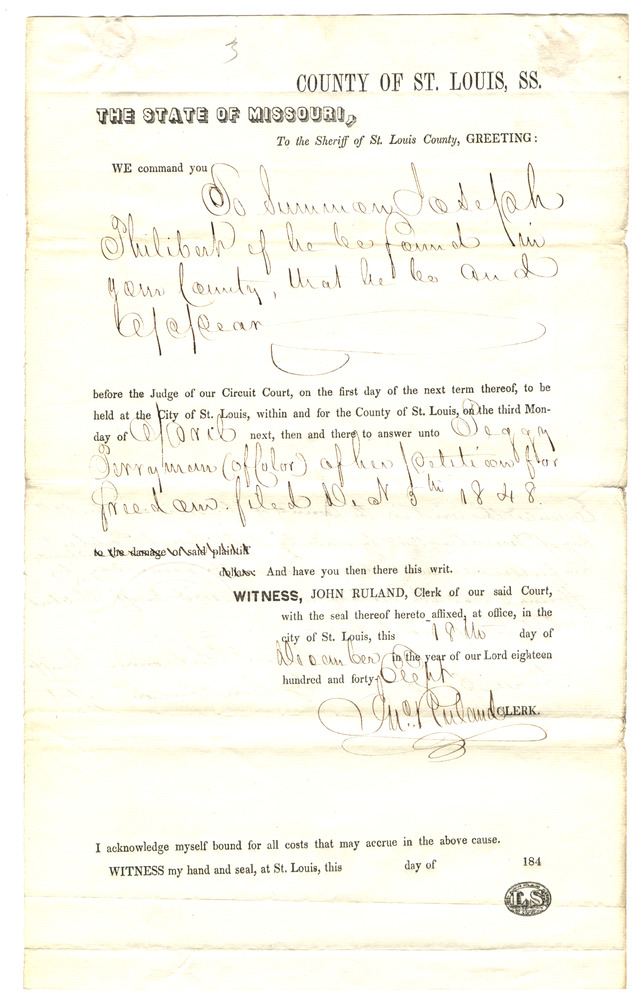 3
COUNTY OF ST. LOUIS, SS.
THE STATE OF MISSOURI,
To the Sheriff of St. Louis County, GREETING:
WE command you
To Summon Joseph
Philibert if he be found in
your County, that he be and
appear
before the Judge of our Circuit Court, on the first day of the next term thereof, to be
held at the City of St. Louis, within and for the County of St. Louis, on the third Mon-
day of April next, then and there to answer unto Peggy
Perryman (of Color) of her petition for
freedom. filed Dec 5th 1848.
to the damage of said plaintiff
dollars: And have you then there this writ.
WITNESS, JOHN RULAND, Clerk of our said Court,
with the seal thereof hereto affixed, at office, in the
city of St. Louis, this 18th day of
December in the year of our Lord eighteen
hundred and forty-eight
Jno. Ruland CLERK.
I acknowledge myself bound for all costs that may accrue in the above cause.
WITNESS my hand and seal, at St. Louis, this day of 184
LS